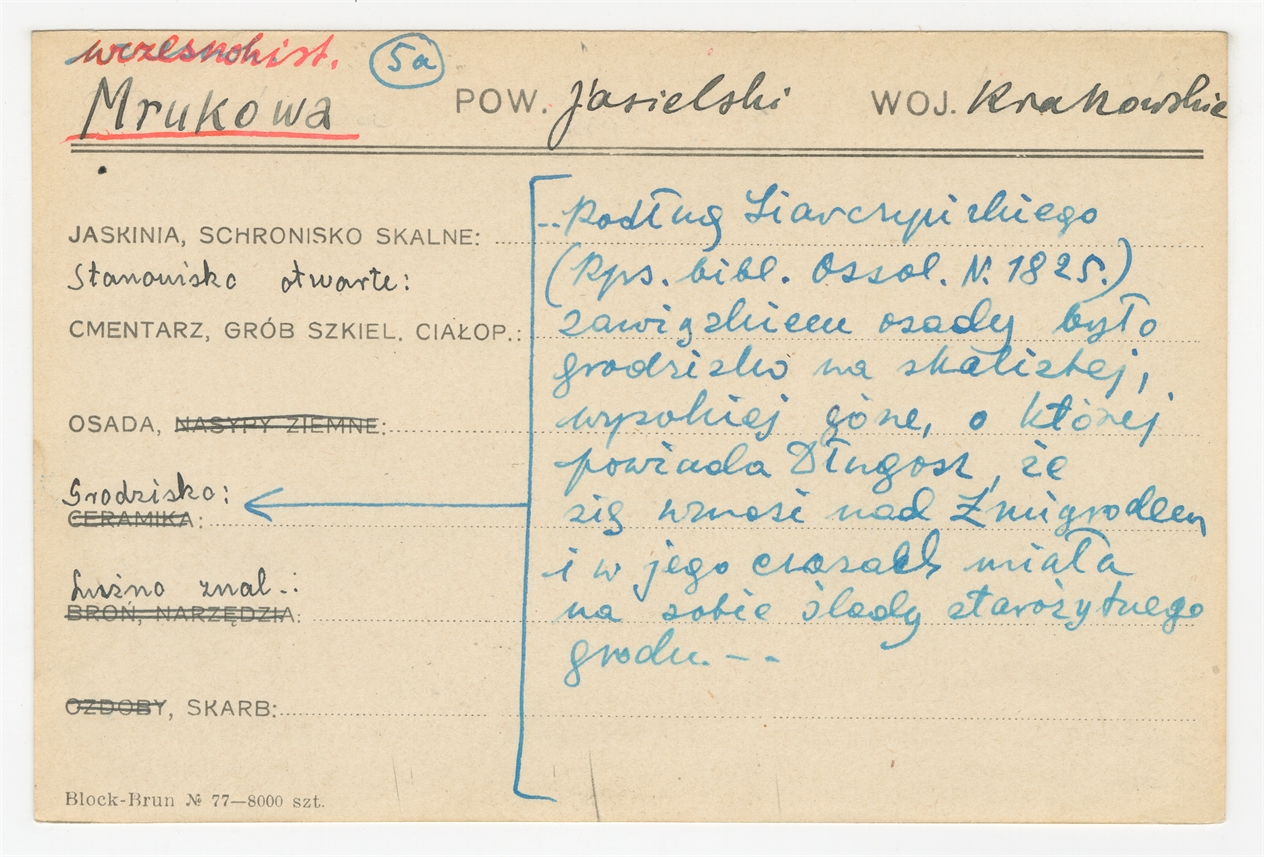 wczesnohist. 5a
Mrukowa POW. jasielski WOJ. Krakowskie
JASKINIA, SCHRONISKO SKALNE:
Stanowisko otwarte:
CMENTARZ, GRÓB SZKIEL. CIAŁOP.:
OSADA, NASYPY ZIEMNE:
Grodzisko:
CERAMIKA:
Luźno znal.:
BROŃ, NARZĘDZIA:
OZDOBY, SKARB:
Block-Brun № 77—8000 szt.
..Podług Siarczyńskiego
(Rps. bibl. Ossol. N. 1825.)
zawiązkiem osady było
grodzisko na skalistej,
wysokiej górze, o której
powiada Długosz, że
się wznosi nad Żmigrodem
i w jego czasach miała
na sobie ślady starożytnego
grodu. - -